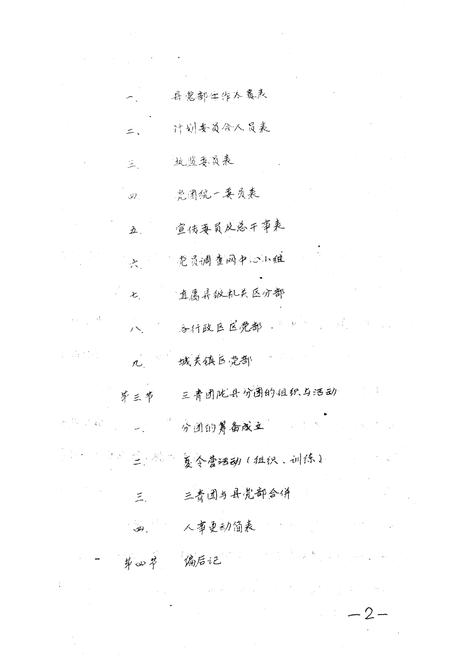 一、 县党部工作人员表
二、 计划委员会人员表
三、 执监委员表
四、 党团统一委员表
五、 宣传委员及总干事表
六、 党员调查网中心小组
七、 直属县级机关区分部
八、 各行政区区党部
九、 城关镇区党部
第三节 三青团陇县分团的组织与活动
一、 分团的筹备成立
二、 夏令营活动（组织、训练）
三、 三青团与县党部合併
四、 人事更动简表
第四节 编后记
—2—